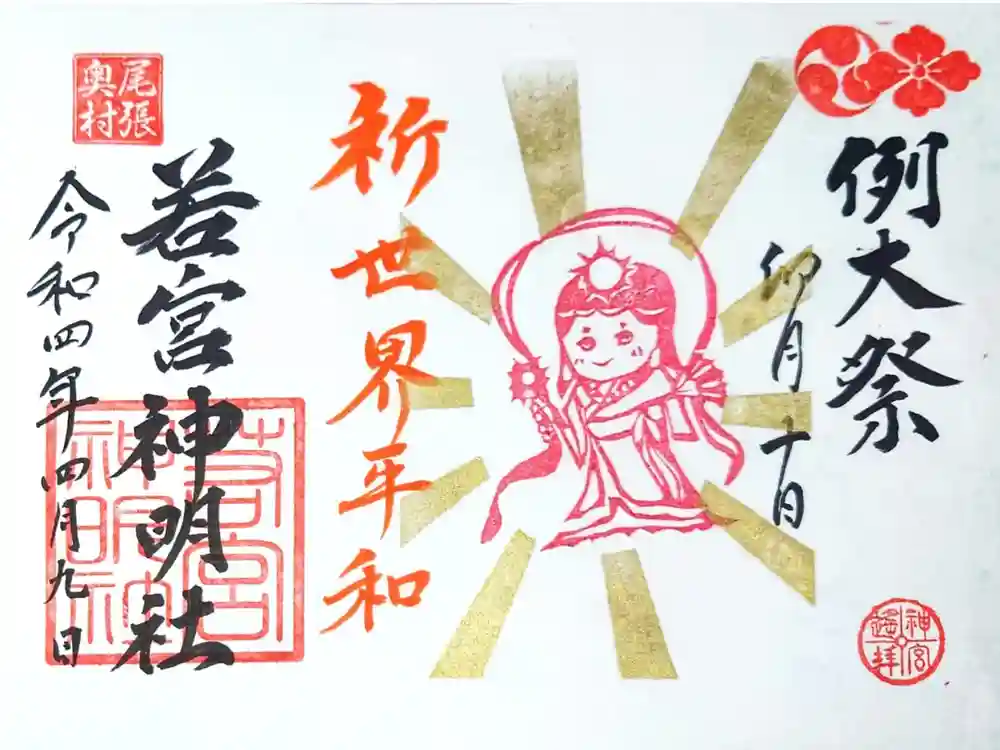 例大祭
卯月十日
祈世界平和
若宮神明社
令和四年四月九日
尾張
奥村
若宮
神明社
神宮
遙拝